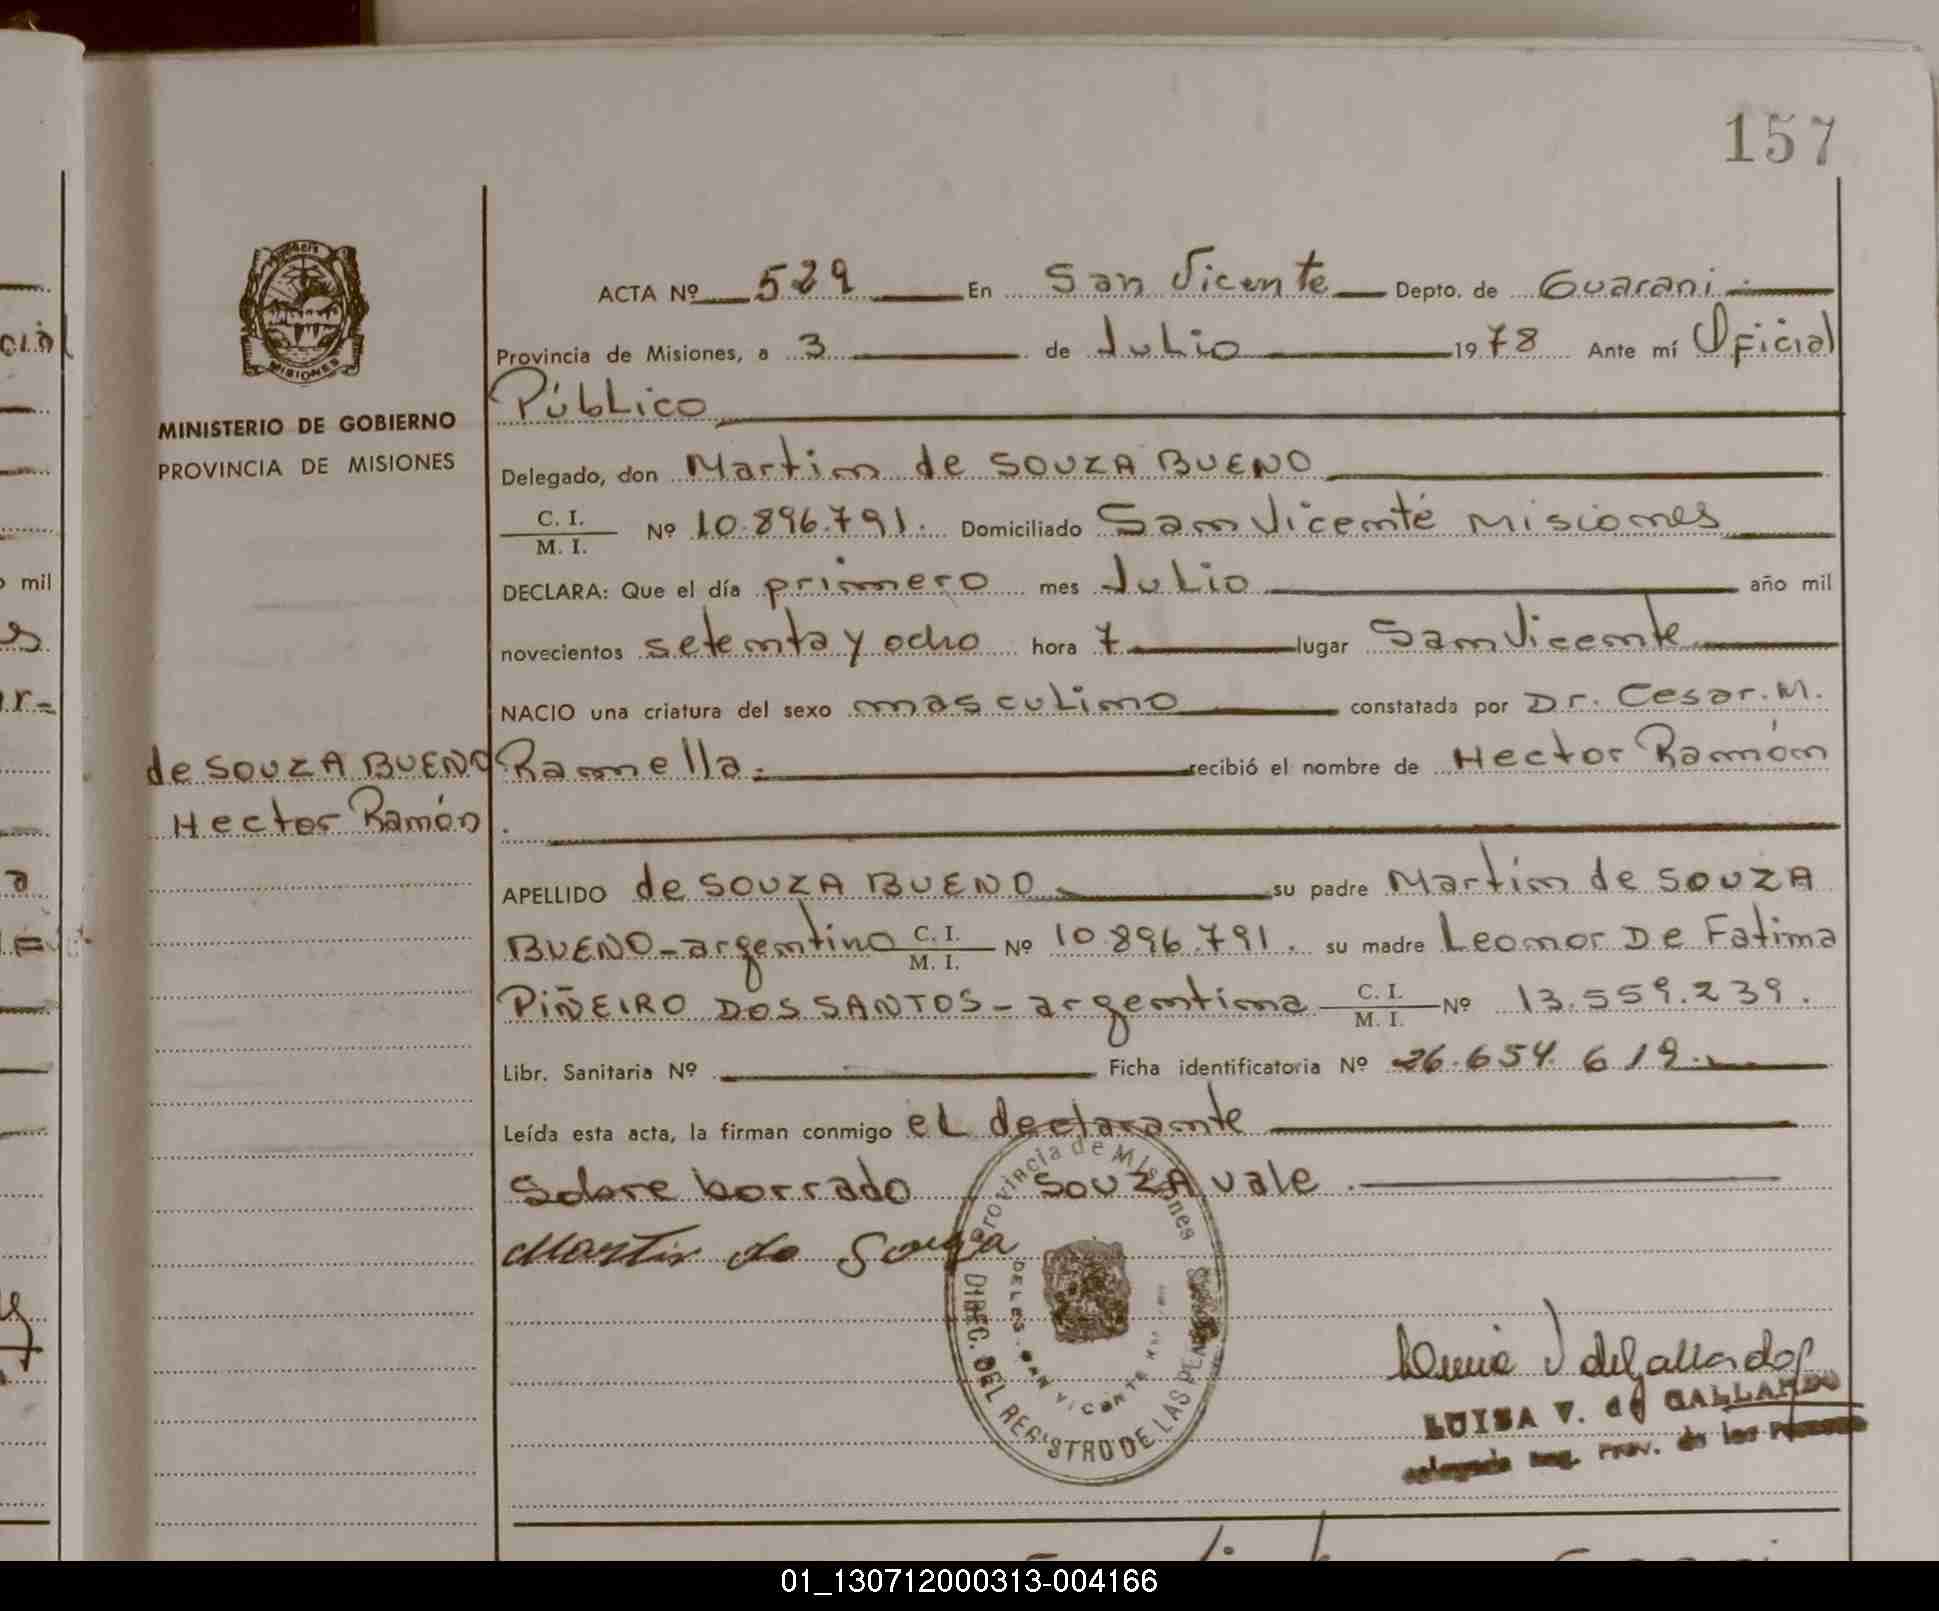 157
ACTA Nº 529 En San Vicente Depto. de Guarani
Provincia de Misiones, a 3 de Julio 1978 Ante mí Oficial
Público
Delegado, don Martim de SOUZA BUENO
C. I. / M. I. Nº 10.896.791. Domiciliado San Vicente Misiones
DECLARA: Que el día primero mes Julio año mil
novecientos setenta y ocho hora 7 lugar San Vicente
NACIO una criatura del sexo masculino constatada por Dr. Cesar. M.
Ramella. recibió el nombre de Hector Ramón
APELLIDO de SOUZA BUENO su padre Martim de SOUZA
BUENO - argentino C. I. / M. I. Nº 10.896.791. su madre Leonor De Fatima
PIÑEIRO DOS SANTOS - argentina C. I. / M. I. Nº 13.559.239.
Libr. Sanitaria Nº Ficha identificatoria Nº 26.654.619.
Leída esta acta, la firman conmigo el declarante
Sobre borrado SOUZA vale.
Martin de Souza
Provincia de Misiones
DIREC. DEL REGISTRO DE LAS PERSONAS
SAN VICENTE
LUISA V. de GALLARDO
Reg. Prov. de las Personas
MISIONES
MINISTERIO DE GOBIERNO
PROVINCIA DE MISIONES
de SOUZA BUENO
Hector Ramón
mil
01_130712000313-004166